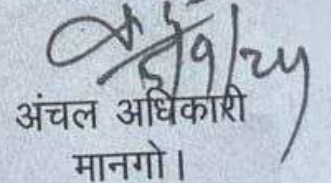 5/9/24
अंचल अधिकारी
मानगो।